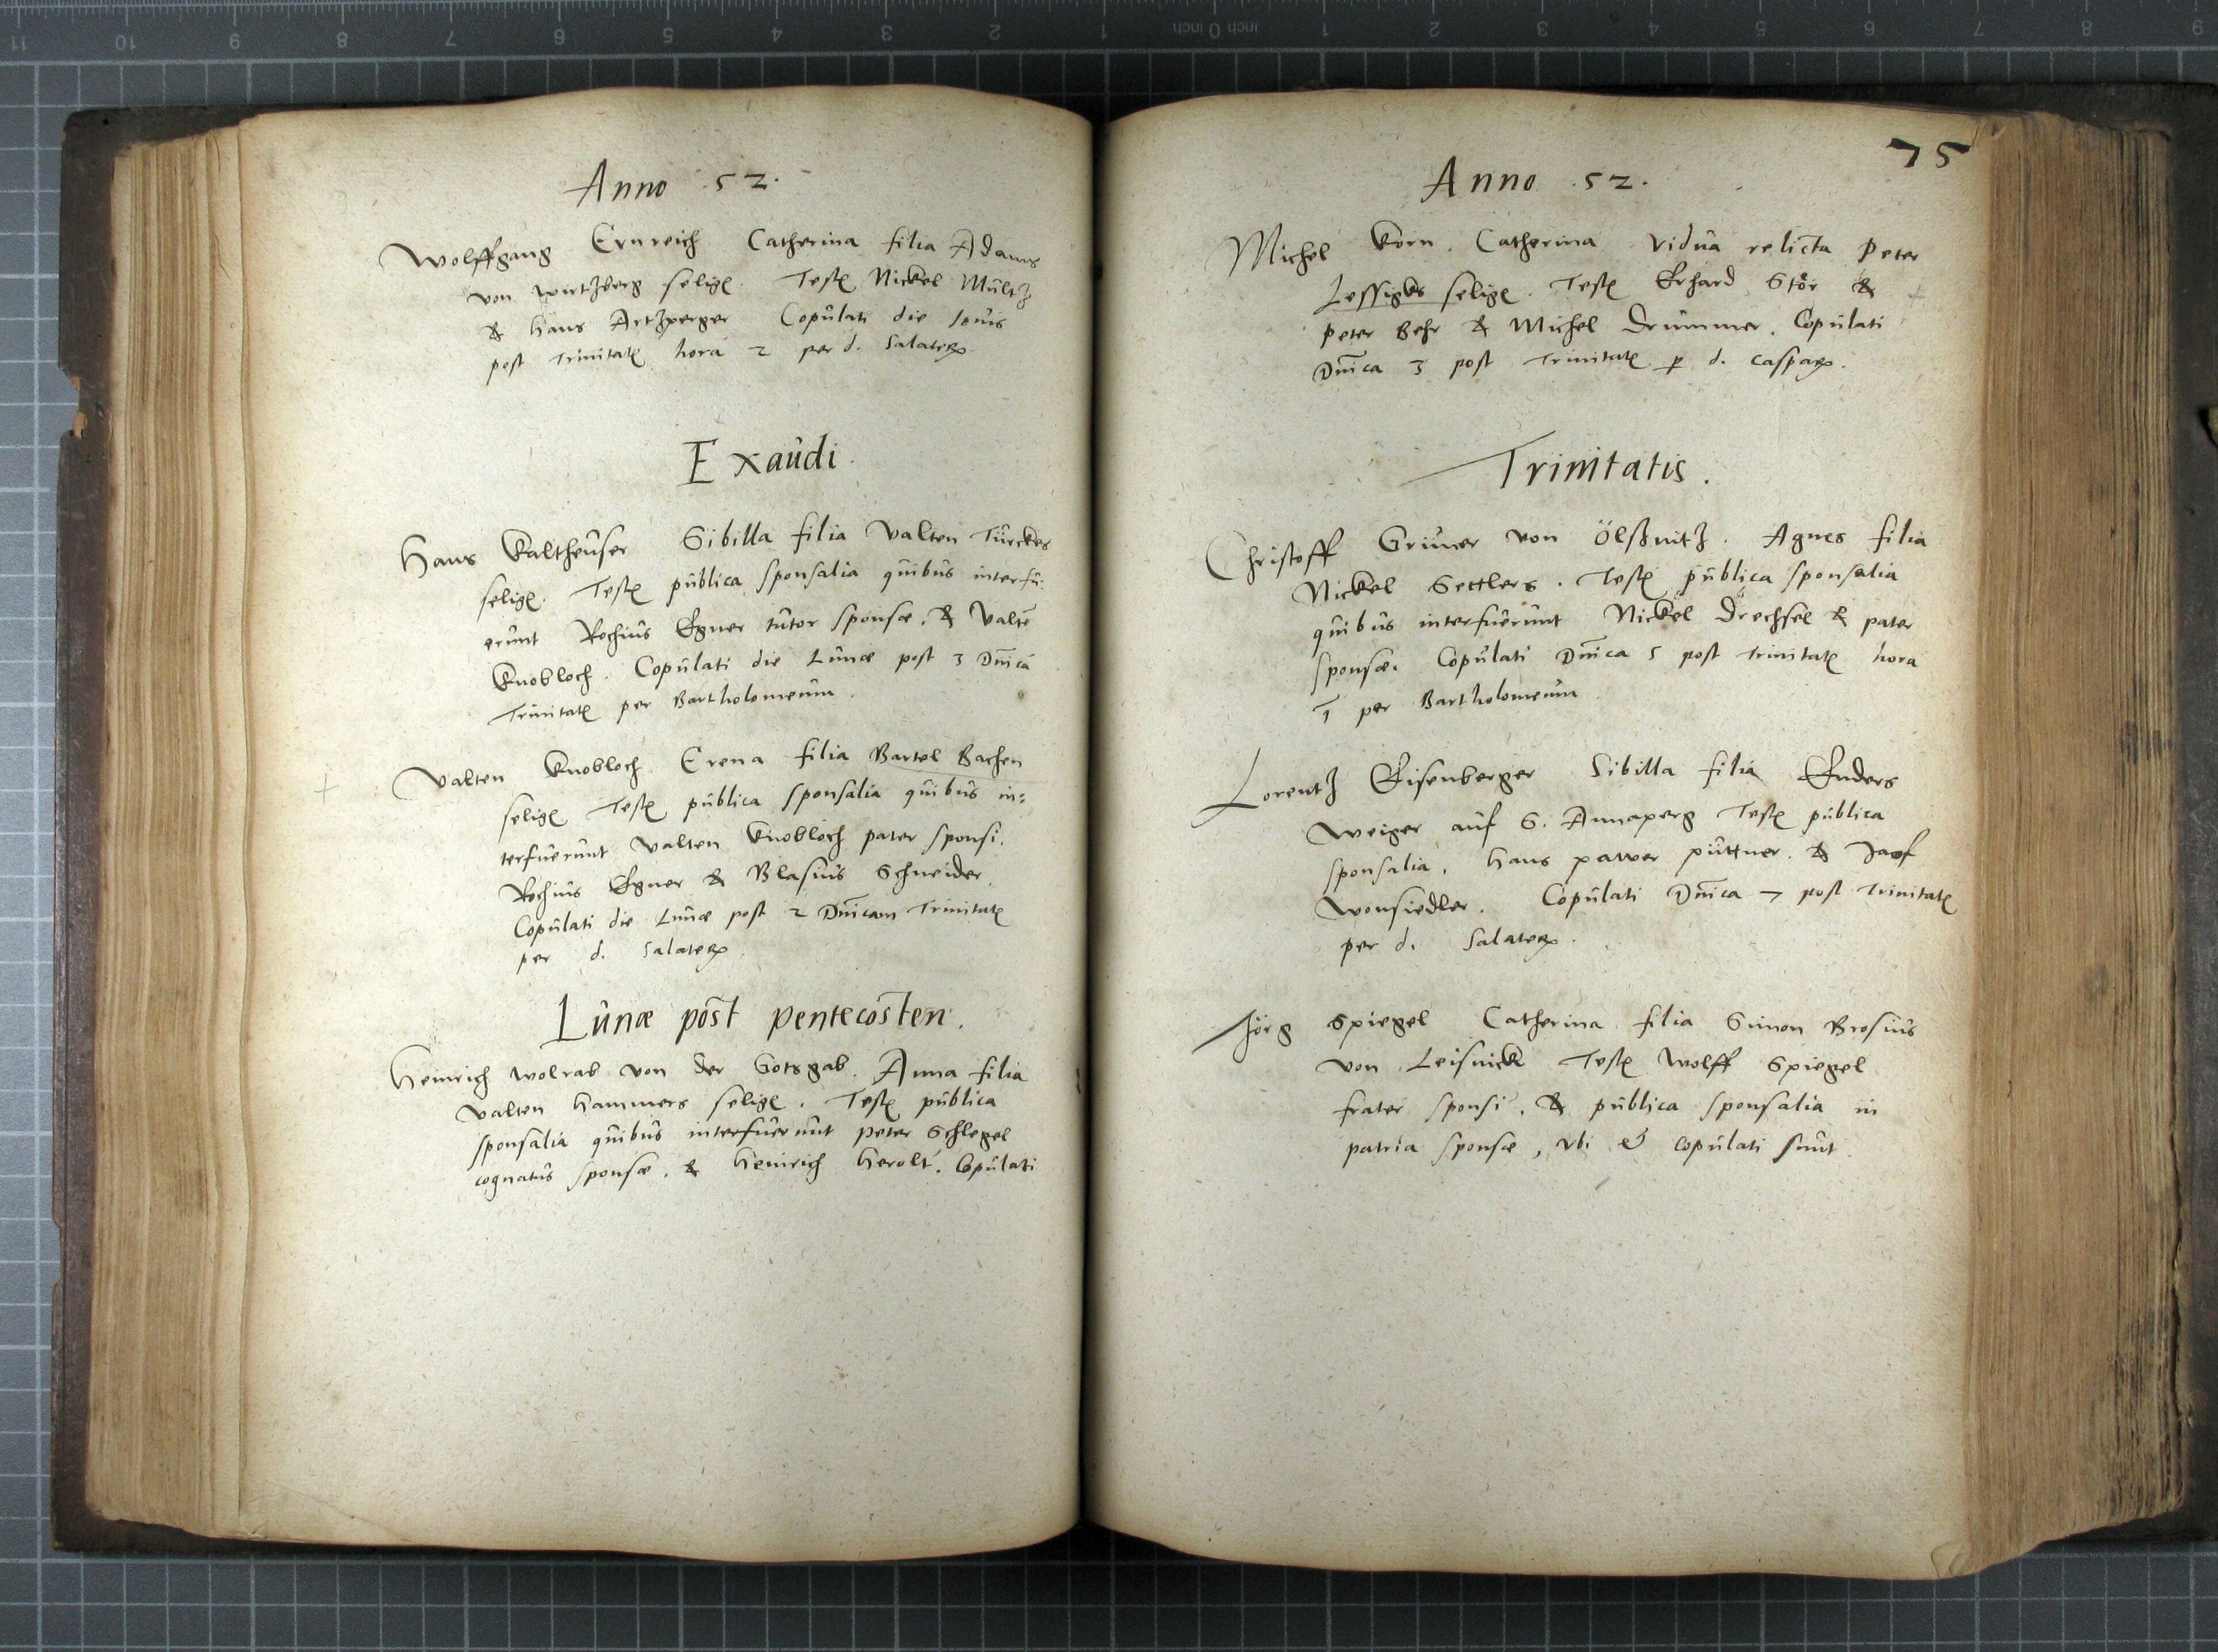 Anno .52.
Wolffgang Ernreich Catherina filia Adams
von wirtzberg selig. Test Nickel Mültz
& Hans Artzperger Copulati die Iouis
post Trinitat hora 2 per d. Salater
Exaudi.
Hans Kaltheuser Sibilla filia Valten Türckes
selig. Test publica sponsalia quibus interfu-
erunt Rochius Egner tutor sponsæ, & Valtē
Knobloch. Copulati die Lunæ post 3 Dnica
Trinitat per Bartholomeum.
Valten Knobloch Erena filia Bartel Bachen
selig Test publica sponsalia quibus in=
terfuerunt Valten Knobloch pater sponsi,
Rochius Egner & Blasius Schneider.
Copulati die Lunæ post 2 Dnicam Trinitat
per d. Salater
Lunæ post pentecosten.
Heinrich Wolrab von der Gotsgab. Anna filia
Valten Hammers selig. Test publica
sponsalia quibus interfuerunt peter Schlegel
cognatus sponsæ, & Heinrich Herolt. Copulati
75
Anno .52.
Michel Korn. Catherina vidua relicta Peter
Lessigks selig. Test Erhard Stör &
Peter Behr & Michel Drummer. Copulati
Dnica 3 post Trinitat p d. caspar.
Trinitatis.
Christoff Grüner von Ölßnitz. Agnes filia
Nickel Settlers. Test publica sponsalia
quibus interfuerunt Nickel Drechsel & pater
sponsæ. Copulati Dnica 5 post Trinitat hora
1 per Bartholomeum
Lorentz Eisenberger Sibilla filia Enders
Weiger auf S. Annaperg Test publica
sponsalia, Hans pawer püttner &
Wonsiedler. Copulati Dnica 7 post Trinitat
per d. Salater.
Jörg Spiegel Catherina filia Simon Brosius
von Leisnick Test Wolff Spiegel
frater sponsi, & publica sponsalia in
patria sponsæ, vbi & copulati sunt.